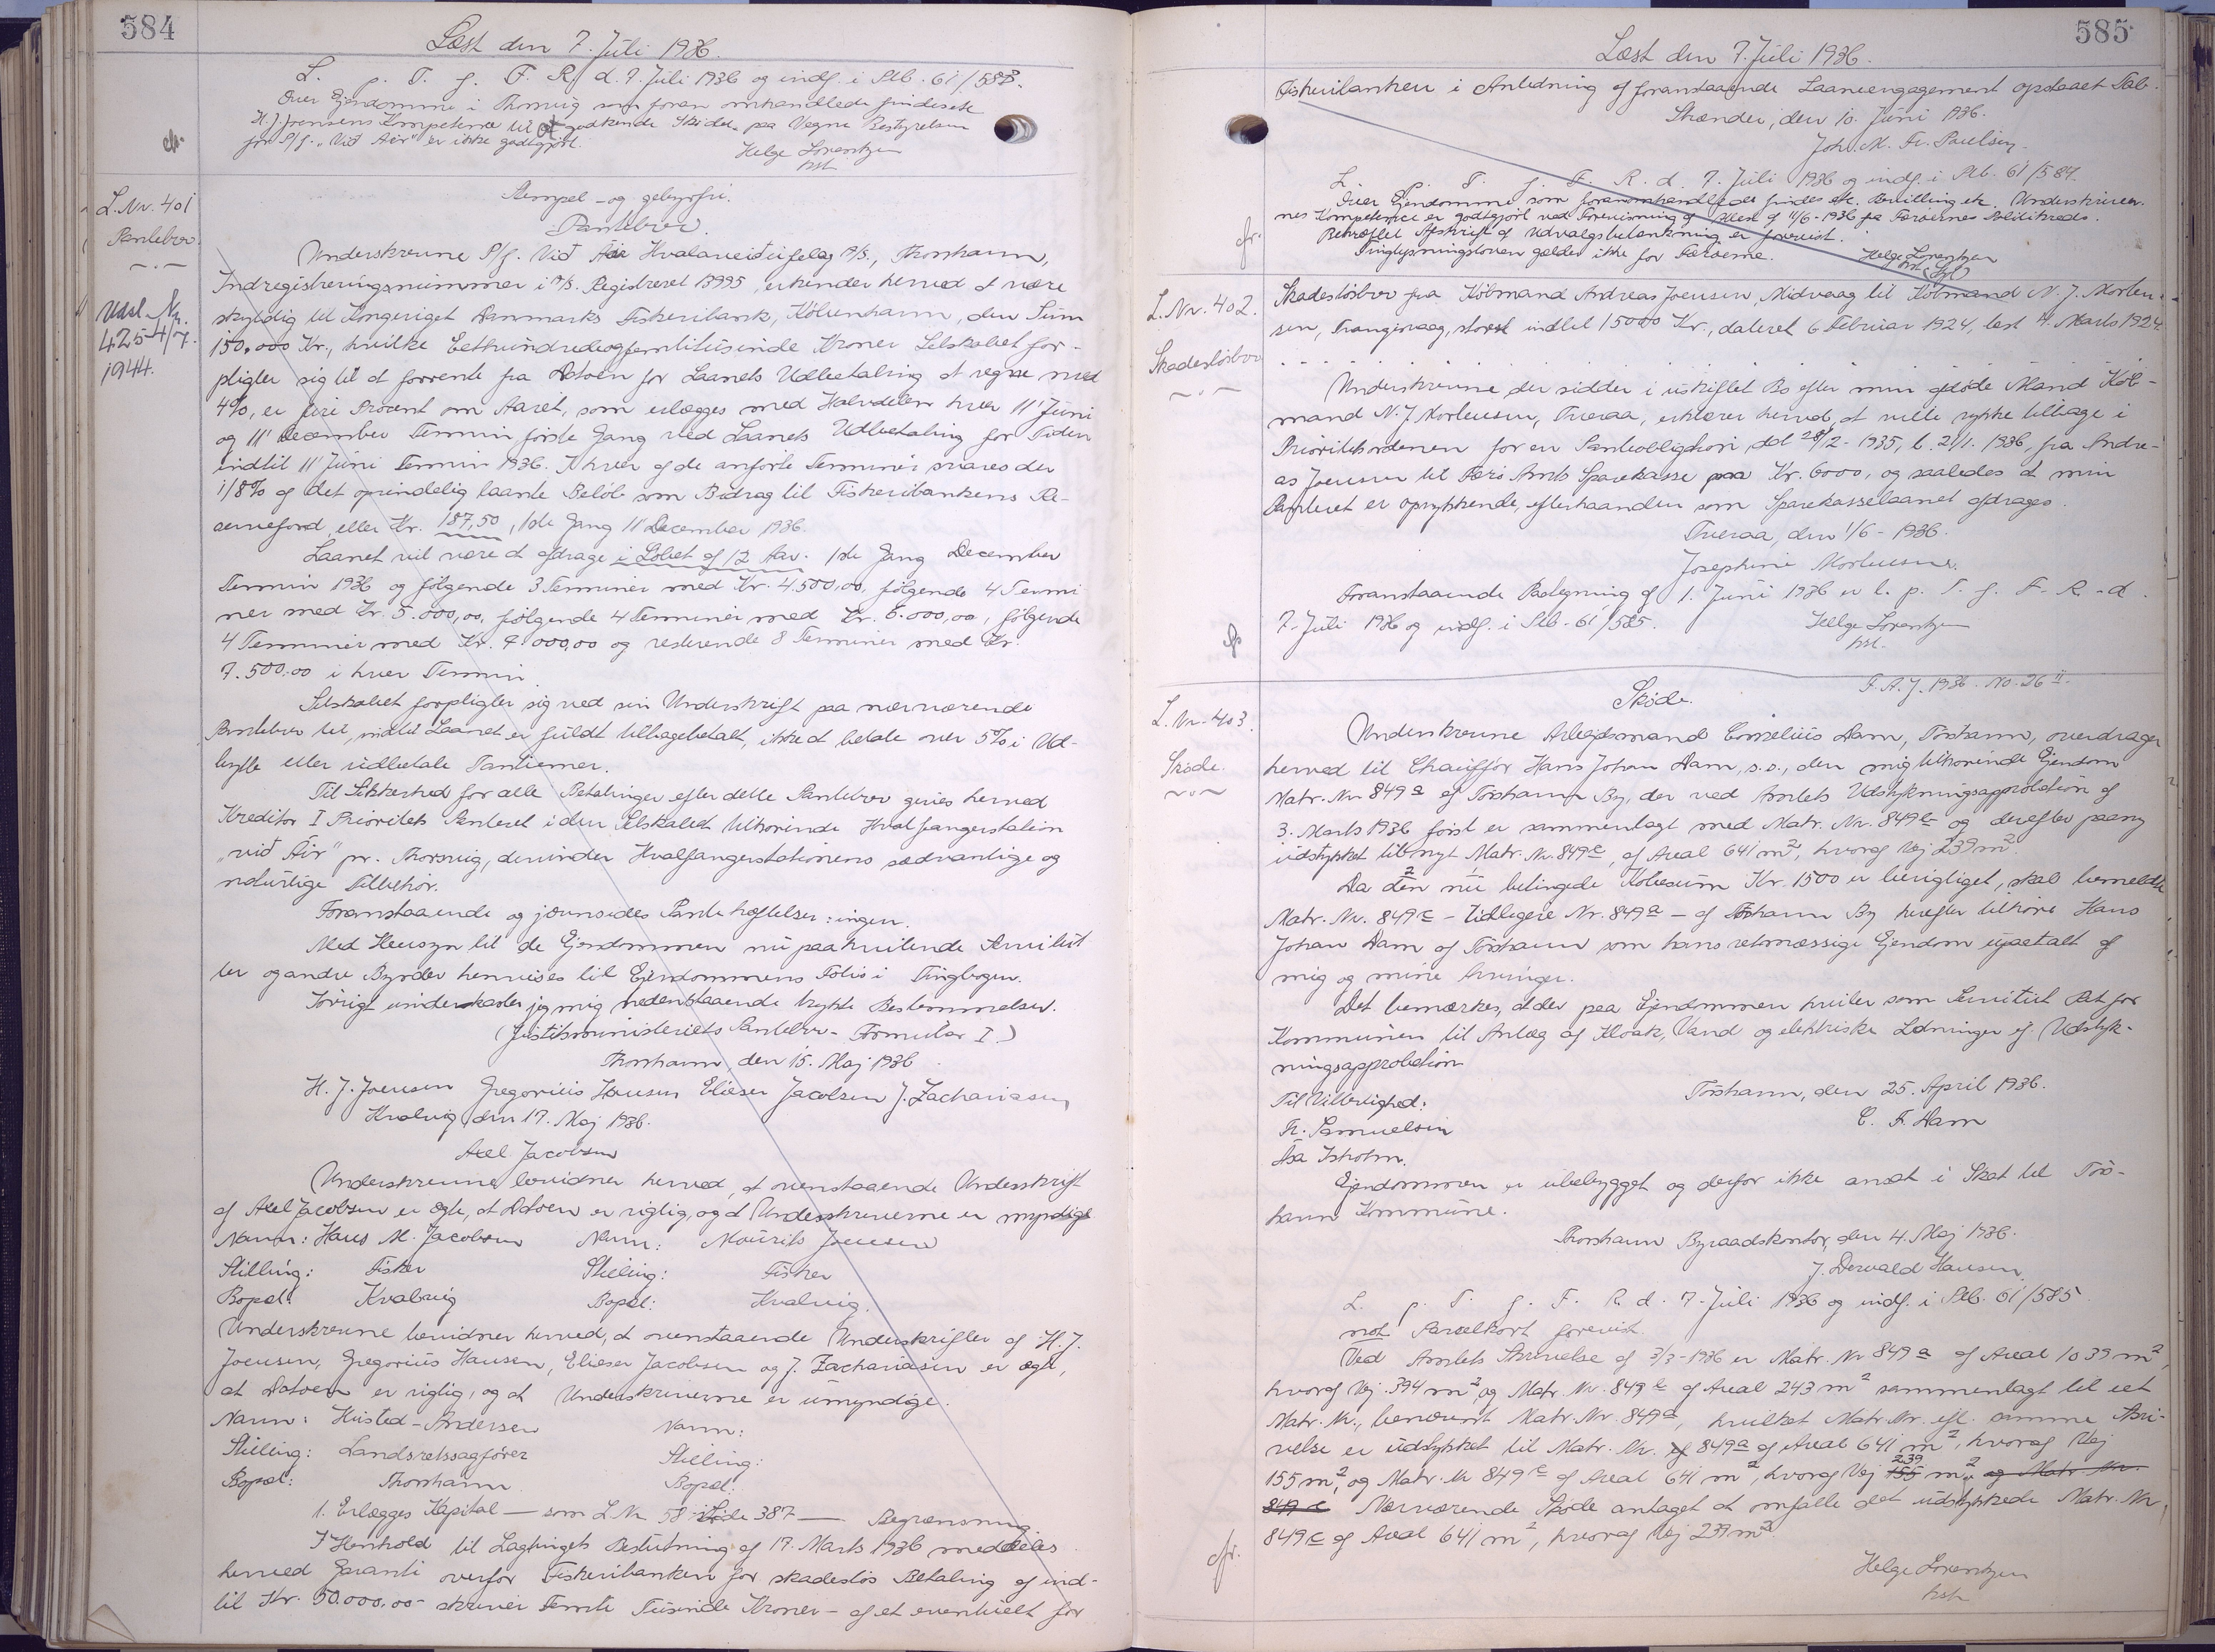 584
Læst den 7. Juli 1936.
L. p. T. f. F. R. d. 7. Juli 1936 og indf. i Skb. 61/583.
Over Ejendomme i Thorsvig som foran omhandlede findes etc
H. J. Joensens Kompetence til at godkende Skødet paa Vegne Bestyrelsen
for P/f. "Við Air" er ikke godtgjort.
Helge Lorentzen
kst.
L. Nr. 401
Pantebrev.
Udsl. Nr.
425 4/7.
1944.
Stempel- og gebyrfri.
Pantebrev.
Underskrevne P/f. Við Air Hvalaveiðifelag A/S., Thorshavn,
Indregistreringsnummer i A/S. Registreret 13995, erkender herved at være
skyldig til Kongeriget Danmarks Fiskeribank, København, den Sum
150.000 Kr., hvilke Eethundredeogfemtitusinde Kroner Selskabet for-
pligter sig til at forrente fra Datoen for Laanets Udbetaling at regne med
4%, er fire Procent om Aaret, som erlægges med Halvdelen hver 11' Juni
og 11' December Termin første Gang ved Laanets Udbetaling for Tiden
indtil 11' Juni Termin 1936. I hver af de anførte Terminer svares der
1/8% af det oprindelig laante Beløb som Bidrag til Fiskeribankens Re-
servefond, eller Kr. 187,50, 1ste Gang 11' December 1936.
Laanet vil være at afdrage i Løbet af 12 Aar. 1ste Gang December
Termin 1936 og følgende 3 Terminer med Kr. 4.500,00, følgende 4 Termi
ner med Kr. 5.000,00, følgende 4 Terminer med Kr. 6.000,00, følgende
4 Terminer med Kr. 7.000,00 og resterende 8 Terminer med Kr.
7.500,00 i hver Termin.
Selskabet forpligter sig ved sin Underskrift paa nærværende
Pantebrev til, indtil Laanet er fuldt tilbagebetalt, ikke at betale over 5% i Ud-
bytte eller udbetale Tantiemer.
Til Sikkerhed for alle Betalinger efter dette Pantebrev gives herved
Kreditor I Prioritets Panteret i den Selskabet tilhørende Hvalfangerstation
"við Áir" pr. Thorsvig, derunder Hvalfangerstationens sædvanlige og
naturlige Tilbehør.
Foranstaaende og jævnsides Pantehæftelser: ingen.
Med Hensyn til de Ejendommen nu paahvilende Servitut
ter og andre Byrder henvises til Ejendommens Folio i Tingbogen.
Iøvrigt underkaster jeg mig nedenstaaende trykte Bestemmelser.
(Justitsministeriets Pantebrev- Formular I.)
Thorshavn, den 15. Maj 1936.
H. J. Joensen Gregorius Hansen Elieser Jacobsen J. Zachariasen
Kvalvig den 17. Maj 1936.
Axel Jacobsen
Underskrevne bevidner herved, at ovenstaaende Underskrift
af Axel Jacobsen er ægte, at Datoen er rigtig, og at Underskriverne er myndige
Navn: Hans M. Jacobsen Navn: Mourits Joensen
Stilling: Fisker Stilling: Fisker
Bopæl: Kvalvig Bopæl: Kvalvig.
Underskrevne bevidner herved, at ovenstaaende Underskrifter af H. J.
Joensen, Gregorius Hansen, Elieser Jacobsen og J. Zachariasen er ægte,
at Datoen er rigtig, og at Underskriverne er umyndige.
Navn: Husted-Andersen Navn:
Stilling: Landsretssagfører Stilling:
Bopæl: Thorshavn Bopæl:
1. Erlægges Kapital — som L. Nr. 58 Side 387 — Begrænsning.
I Henhold til Lagtingets Beslutning af 17. Marts 1936 meddeles
herved Garanti overfor Fiskeribanken for skadesløs Betaling af ind-
til Kr. 50.000,00 - skriver Femti Tusinde Kroner - af et eventuelt for
585
Læst den 7. Juli 1936.
Fiskeribanken i Anledning af foranstaaende Laaneengagement opstaaet Tab.
Skændei, den 10. Juni 1936.
Joh. M. Fr. Paulsen.
L. p. T. f. F. R. d. 7. Juli 1936 og indf. i Skb. 61/584.
Over Ejendomme som foranomhandlede findes etc. Bevilling etc. Underskriver-
nes Kompetence er godtgjort ved Forevisning af Attest af 11/6-1936 fra Færøernes Politikreds.
Bekræftet Afskrift af Udvalgsbetænkning er forevist.
Tinglysningsloven gælder ikke for Færøerne.
Helge Lorentzen
kst.
L. Nr. 402.
Skadesløsbrev
Skadesløsbrev fra Købmand Andreas Joensen, Midvaag til Købmand N. J. Morten-
sen, Trangisvaag, størst indtil 15000 Kr., dateret 6 Februar 1924, læst 4. Marts 1924.
Underskrevne, der sidder i uskiftet Bo efter min afdøde Mand Køb-
mand N. J. Mortensen, Tveraa, erklærer herved, at ville rykke tilbage i
Prioritetsordenen for en Panteobligation, dat 28/12-1935, l. 2/1. 1936, fra Andre-
as Joensen til Færø Amts Sparekasse paa Kr. 6000, og saaledes at min
Panteret er oprykkende, efterhaanden som Sparekasselaanet afdrages.
Tveraa, den 1/6-1936.
Josephine Mortensen.
Foranstaaende Paategning af 1. Juni 1936 er l. p. T. f. F. R. d.
7. Juli 1936 og indf. i Skb. 61/585.
Helge Lorentzen
kst.
L. Nr. 403.
Skøde.
F. A. J. 1936. No. 26 II.
Skøde.
Underskrevne Arbejdsmand Cornelius Dam, Tórshavn, overdrager
herved til Chauffør Hans Johan Dam, s.s., den mig tilhørende Ejendom
Matr. Nr 849 a af Tórshavn By, der ved Amtets Udstykningsapprobation af
3. Marts 1936 først er sammenlagt med Matr. Nr. 849 b og derefter paany
udstykket til nyt Matr. Nr. 849 c, af Areal 641 m², hvoraf Vej 239 m².
Da den nu betingede Købesum Kr. 1500 er berigtiget, skal bemeldte
Matr. Nr. 849 c - tidligere Nr. 849 a - af Tórshavn By herefter tilhøre Hans
Johan Dam af Tórshavn som hans retmæssige Ejendom upaatalt af
mig og mine Arvinger.
Det bemærkes, at der paa Ejendommen hviler som Servitut Ret for
Kommunen til Anlæg af Kloak, Vand og elektriske Ledninger cf. Udstyk-
ningsapprobation
Tórshavn, den 25. April 1936.
C. F. Dam
Til Vitterlighed:
Fr. Samuelsen
Ása Isholm.
Ejendommen er ubebygget og derfor ikke ansat i Skat til Tórs-
havn Kommune.
Thorshavn Byraadskontor, den 4. Maj 1936.
J. Dorvald Hansen.
L. p. T. f. F. R. d. 7. Juli 1936 og indf. i Skb. 61/585
not Parcelkort forevist.
Ved Amtets Skrivelse af 3/3-1936 er Matr. Nr 849 a af Areal 1039 m²,
hvoraf Vej 394 m², og Matr. Nr. 849 b af Areal 243 m² sammenlagt til eet
Matr. Nr., benævnt Matr. Nr. 849 a, hvilket Matr. Nr. efl. samme Skri-
velse er udstykket til Matr. Nr. 849 a af Areal 641 m², hvoraf Vej
155 m², og Matr. Nr 849 c af Areal 641 m², hvoraf Vej 155 239 m², og Matr. Nr.
849 c Nærværende Skøde antaget at omfatte det udstykkede Matr. Nr.
849 c af Areal 641 m², hvoraf Vej 239 m².
Helge Lorentzen
kst